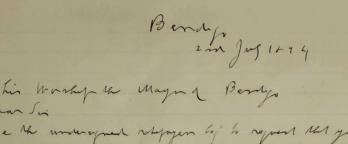 Bendigo
2nd July 1894
His Worship the Mayor of Bendigo
ear Sir
e the undersigned ratepayers beg to request that yo